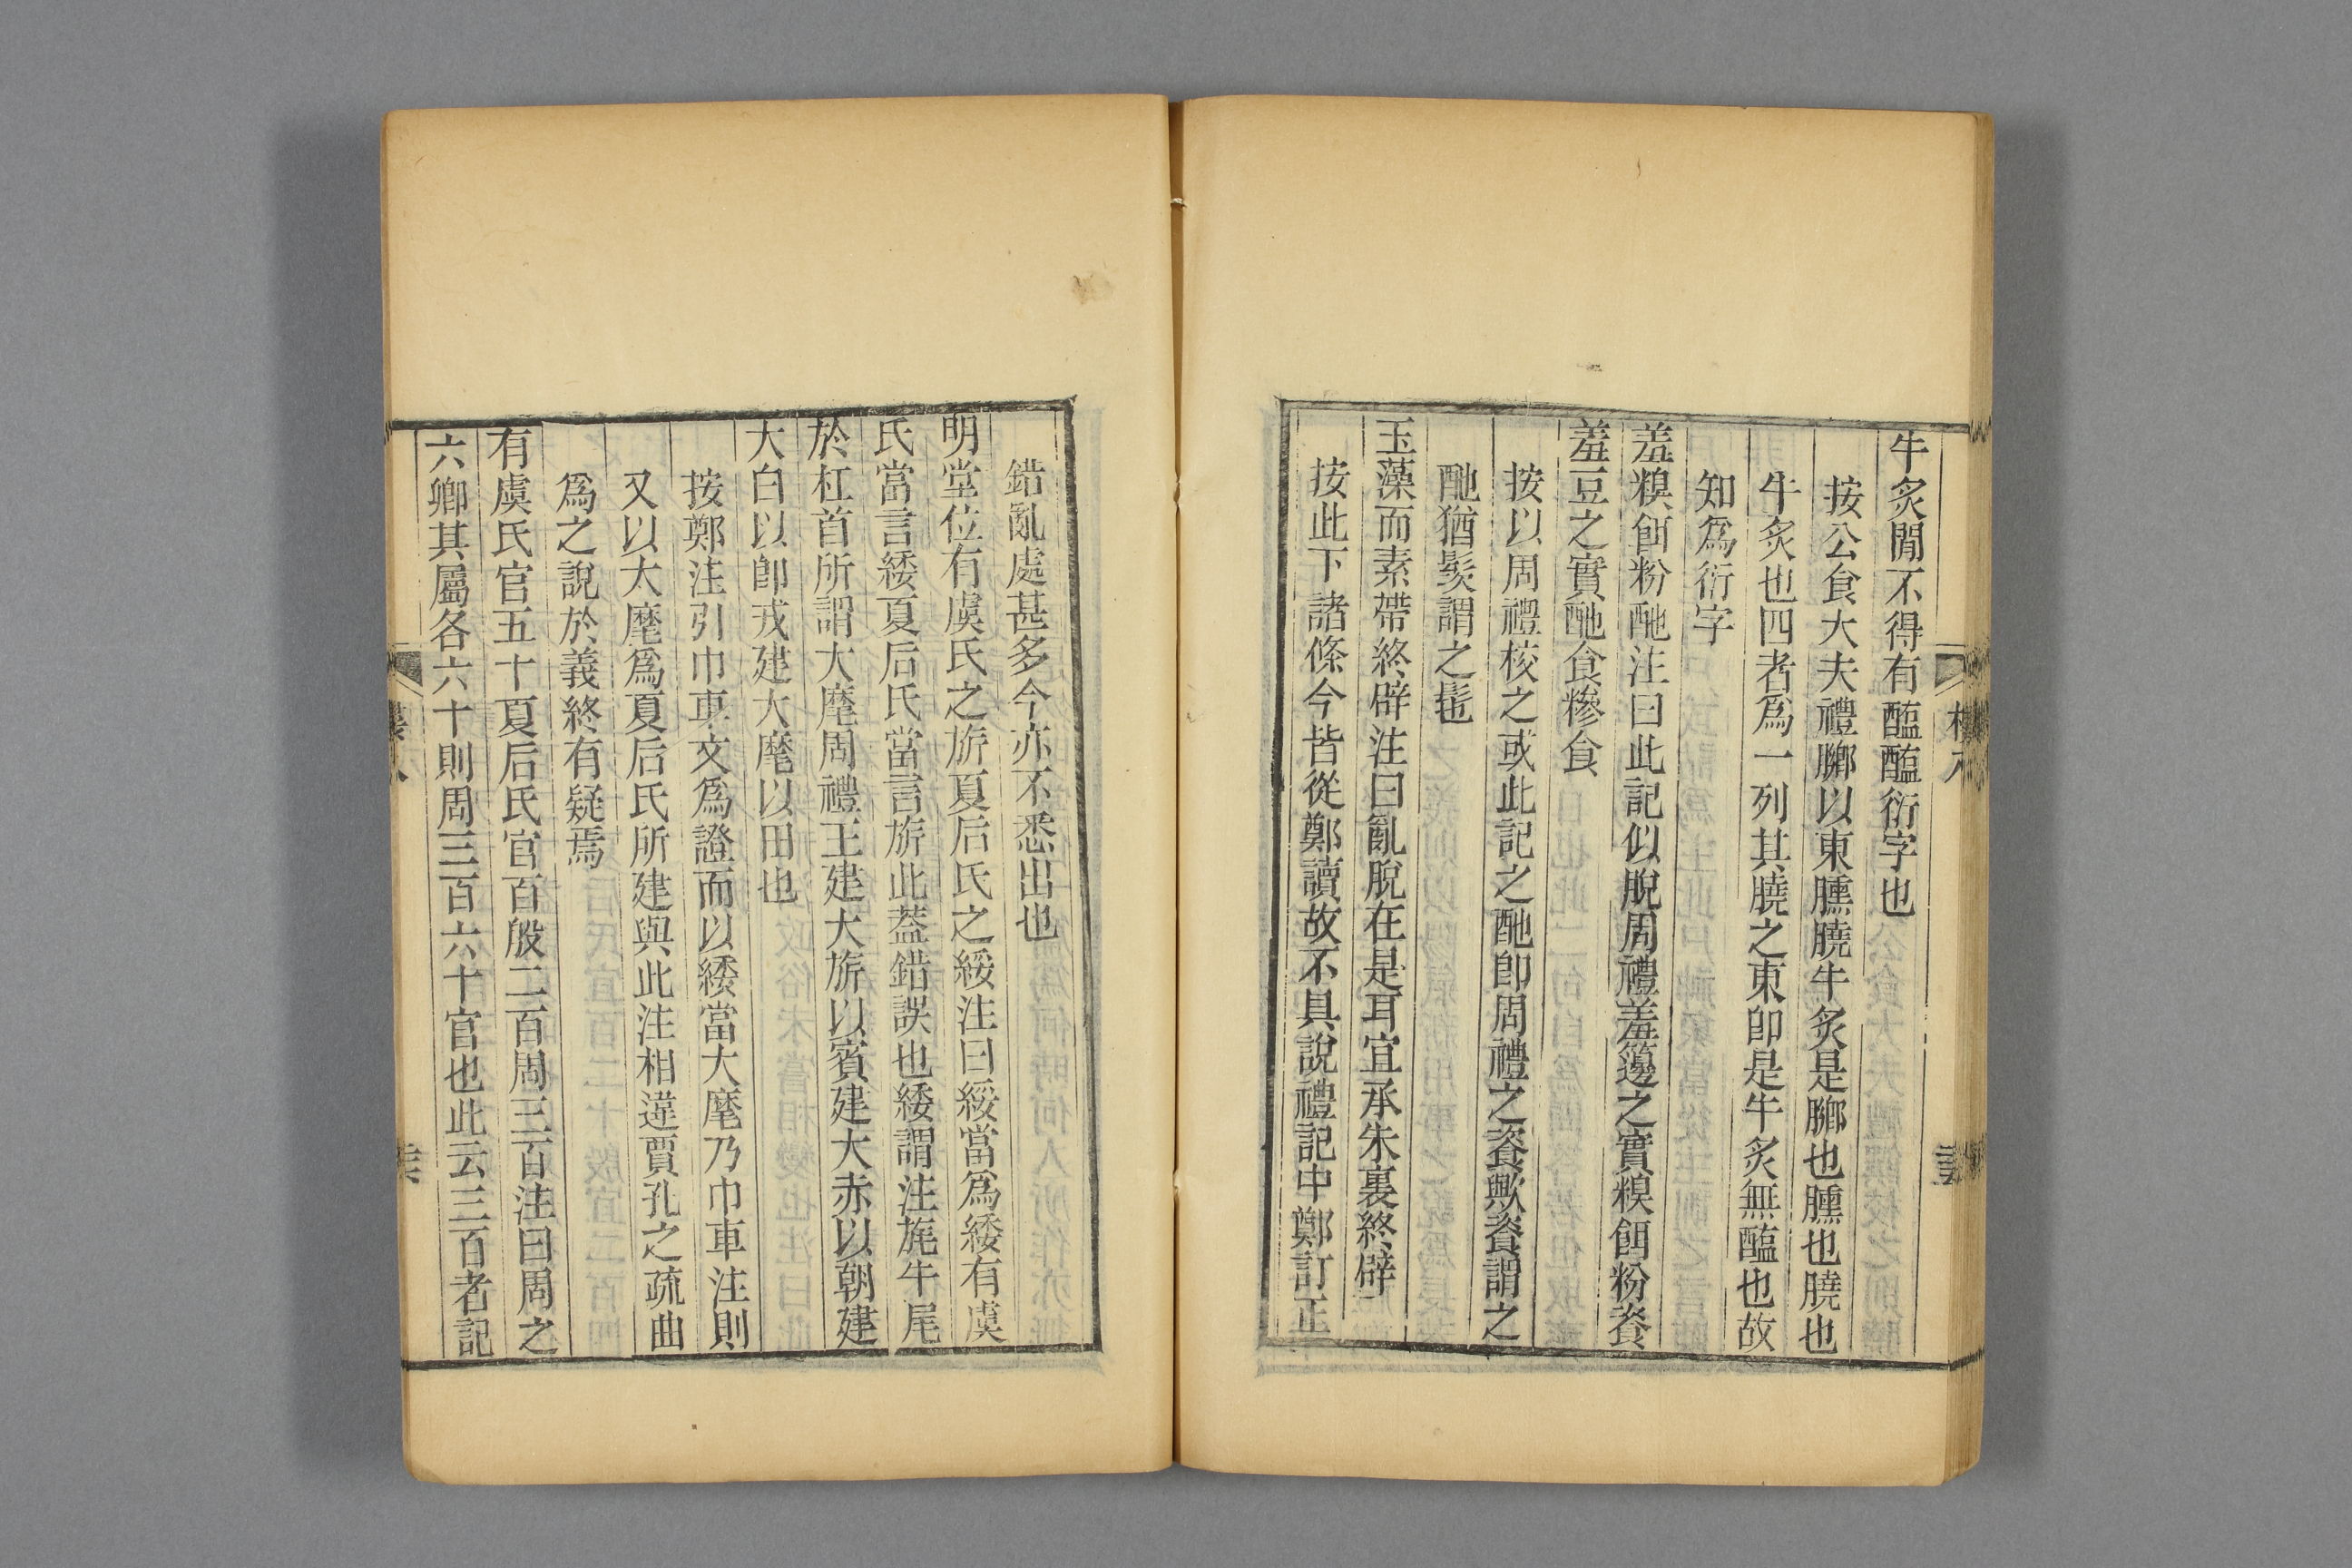 牛炙閒不得有醢醢衍字也
按公食大夫禮膷以東臐膮牛炙是膷也臐也膮也
牛炙也四者爲一列其膮之東卽是牛炙無醢也故
知爲衍字
羞糗餌粉酏注曰此記似脫周禮羞籩之實糗餌粉餈
羞豆之實酏食糝食
按以周禮校之或此記之酏卽周禮之餈歟餈謂之
酏猶髮謂之髢
玉藻而素帶終辟注曰亂脫在是耳宜承朱裏終辟
按此下諸條今皆從鄭讀故不具說禮記中鄭訂正
錯亂處甚多今亦不悉出也
明堂位有虞氏之旂夏后氏之綏注曰綏當爲緌有虞
氏當言緌夏后氏當言旂此蓋錯誤也緌謂注旄牛尾
於杠首所謂大麾周禮王建大旂以賓建大赤以朝建
大白以卽戎建大麾以田也
按鄭注引巾車文爲證而以緌當大麾乃巾車注則
又以大麾爲夏后氏所建與此注相違賈孔之疏曲
爲之說於義終有疑焉
有虞氏官五十夏后氏官百殷二百周三百注曰周之
六卿其屬各六十則周三百六十官也此云三百者記